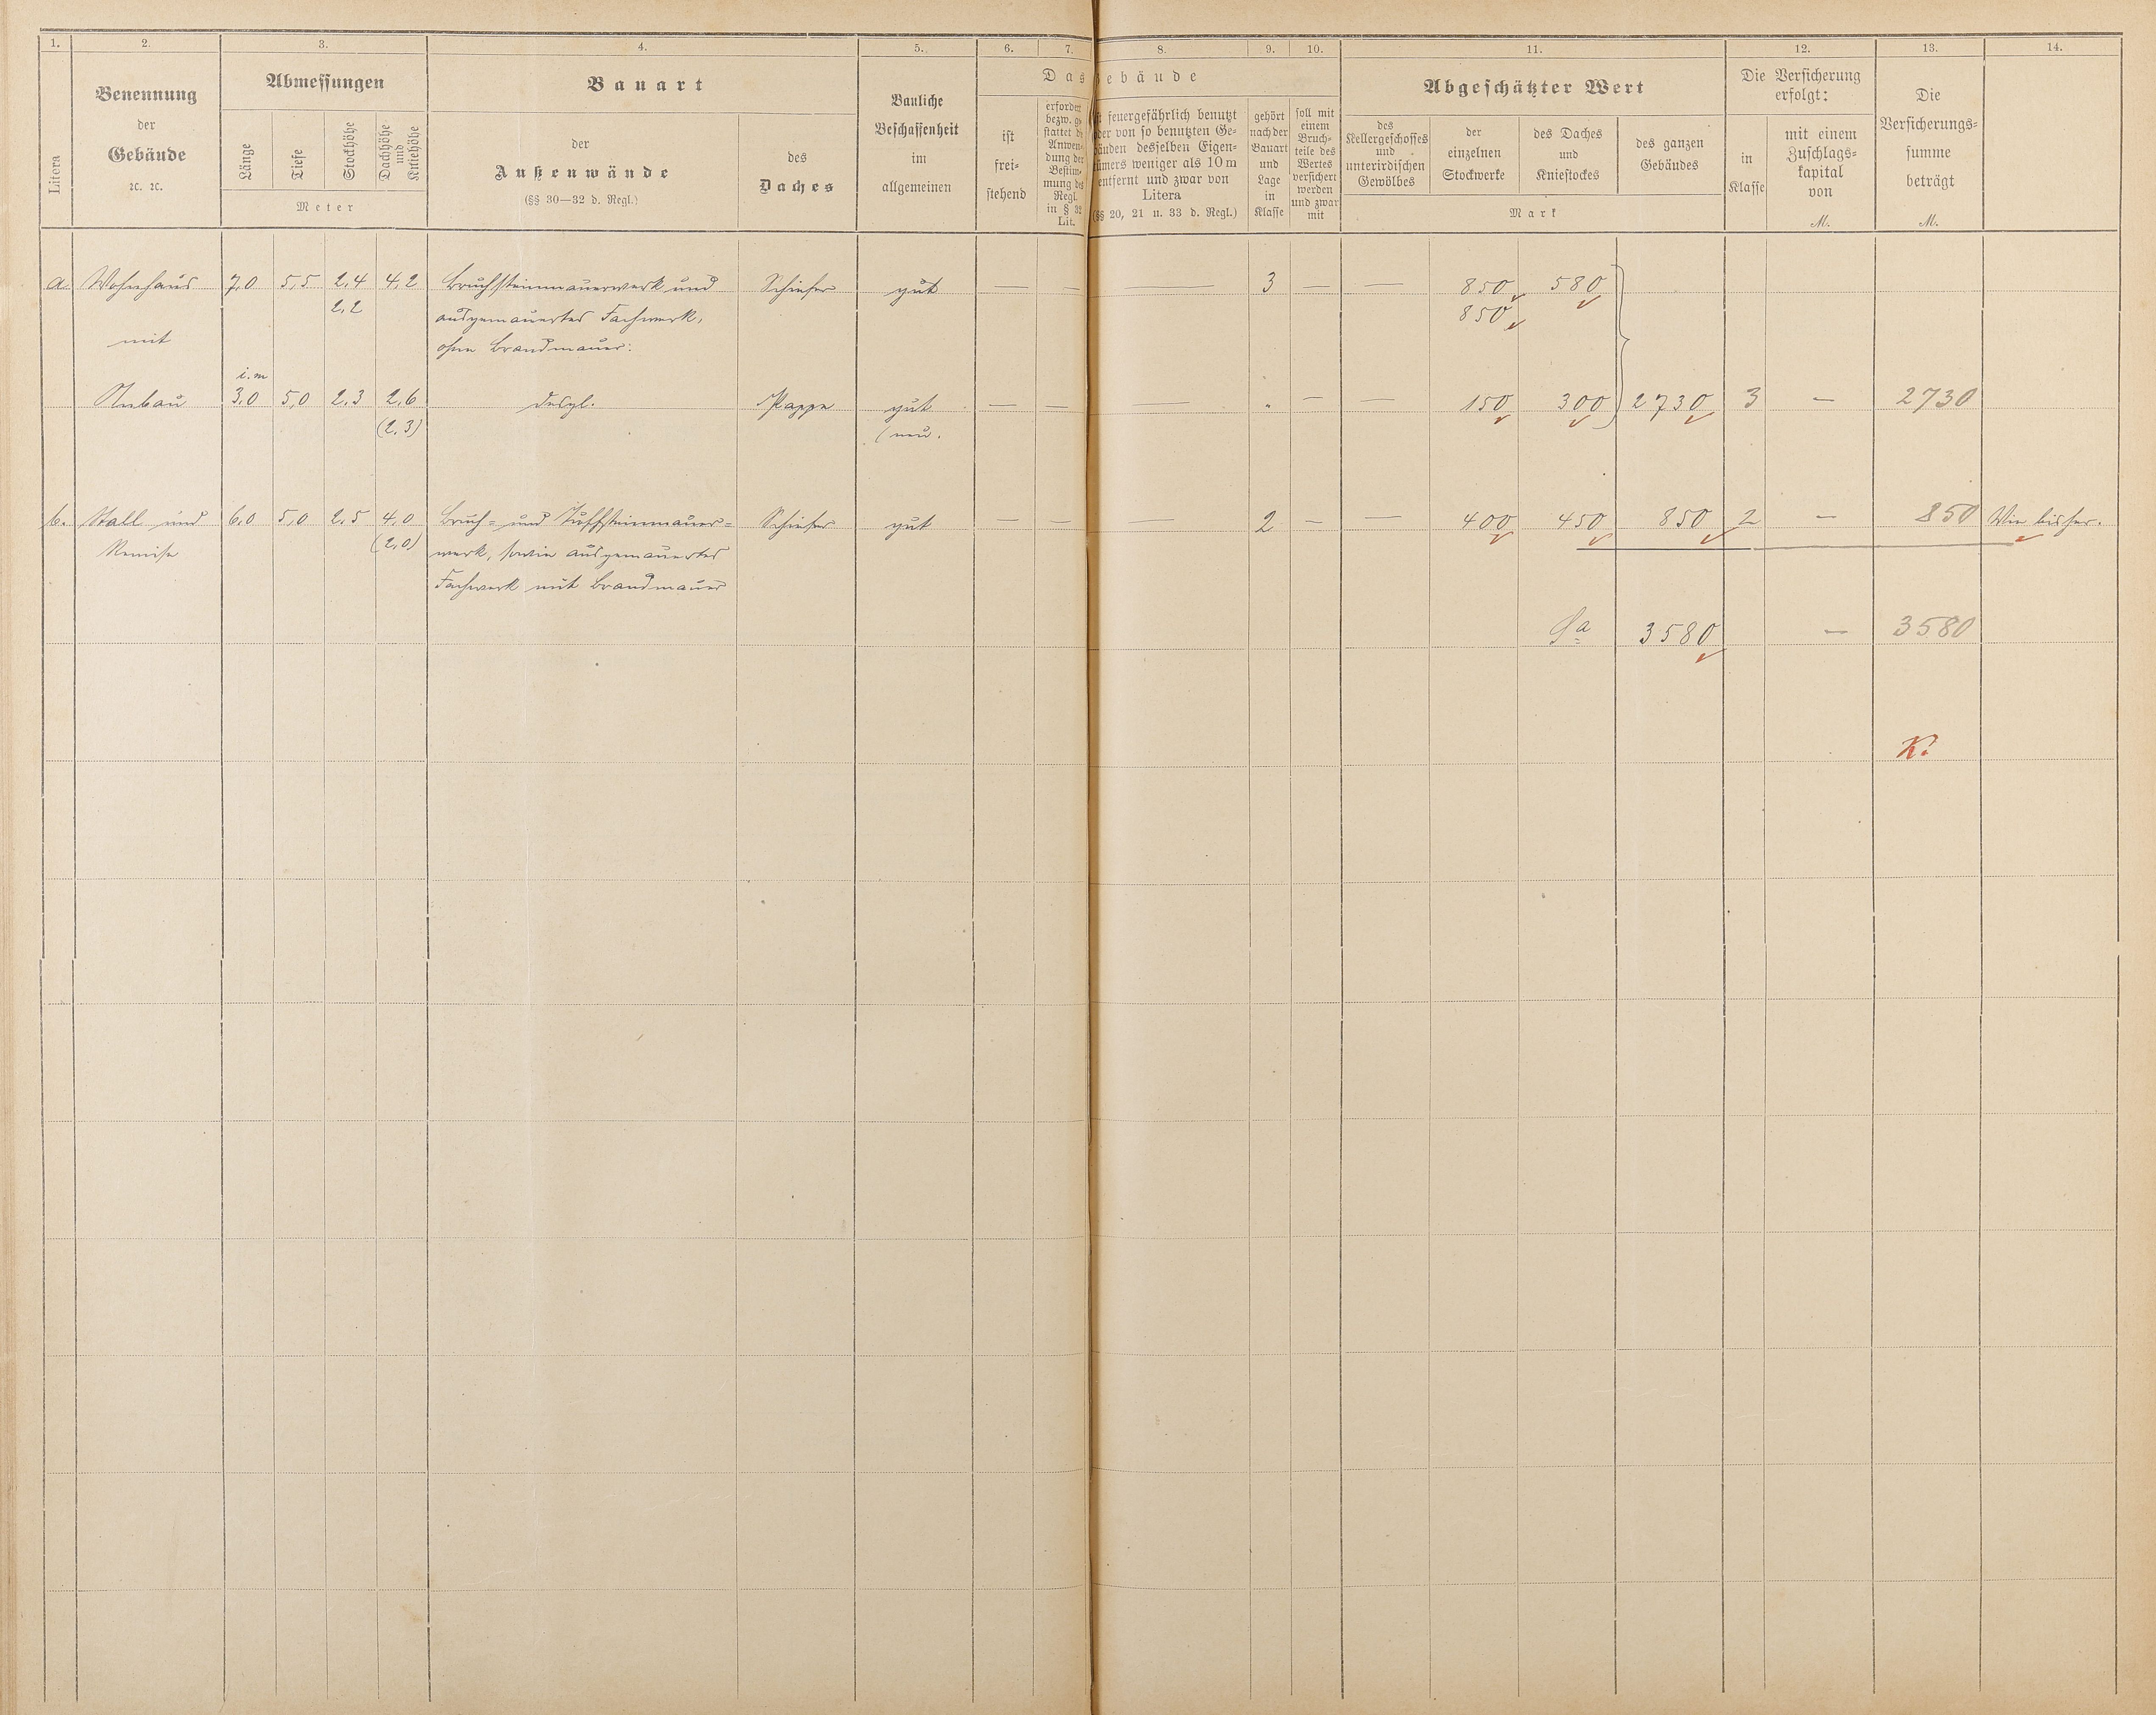 1. 2. 3. 4. 5. 6. 7. 8. 9. 10. 11. 12. 13. 14.
Litera
Benennung
der
Gebäude
ꝛc. ꝛc.
Abmessungen
Länge
Tiefe
Stockhöhe
Dachhöhe
und
Kniehöhe
Meter
Bauart
der
Außenwände
(§§ 30—32 d. Regl.)
des
Daches
Bauliche
Beschaffenheit
im
allgemeinen
Das Gebäude
ist
frei-
stehend
erfordert
bezw. ge
stattet die
Anwen-
dung der
Bestim-
mung des
Regl.
in § 32
Lit.
ist feuergefährlich benutzt
oder von so benutzten Ge-
bäuden desselben Eigen-
tümers weniger als 10 m
entfernt und zwar von
Litera
(§§ 20, 21 u. 33 d. Regl.)
gehört
nach der
Bauart
und
Lage
in
Klasse
soll mit
einem
Bruch-
teile des
Wertes
versichert
werden
und zwar
mit
Abgeschätzter Wert
des
Kellergeschosses
und
unterirdischen
Gewölbes
der
einzelnen
Stockwerke
des Daches
und
Kniestockes
des ganzen
Gebäudes
Mark
Die Versicherung
erfolgt:
in
Klasse
mit einem
Zuschlags-
kapital
von
M.
Die
Versicherungs-
summe
beträgt
M.
a. Wohnhaus 7,0 5,5 2,4 4,2 Bruchsteinmauerwerk und Schiefer gut — — — 3 — — 850 580
2,2 ausgemauertes Fachwerk, 850
mit ohne Brandmauer:
i. m
Anbau 3,0 5,0 2,3 2,6 desgl. Pappe gut — — — " — — 150 300 2730 3 — 2730
(2,3) (neu.
b. Stall und 6,0 5,0 2,5 4,0 Bruch- und Tuffsteinmauer- Schiefer gut — — — 2 — — 400 450 850 2 — 850 Wie bisher.
Remise (2,0) werk, sowie ausgemauertes
Fachwerk mit Brandmauer
Sa 3580 — 3580
K.